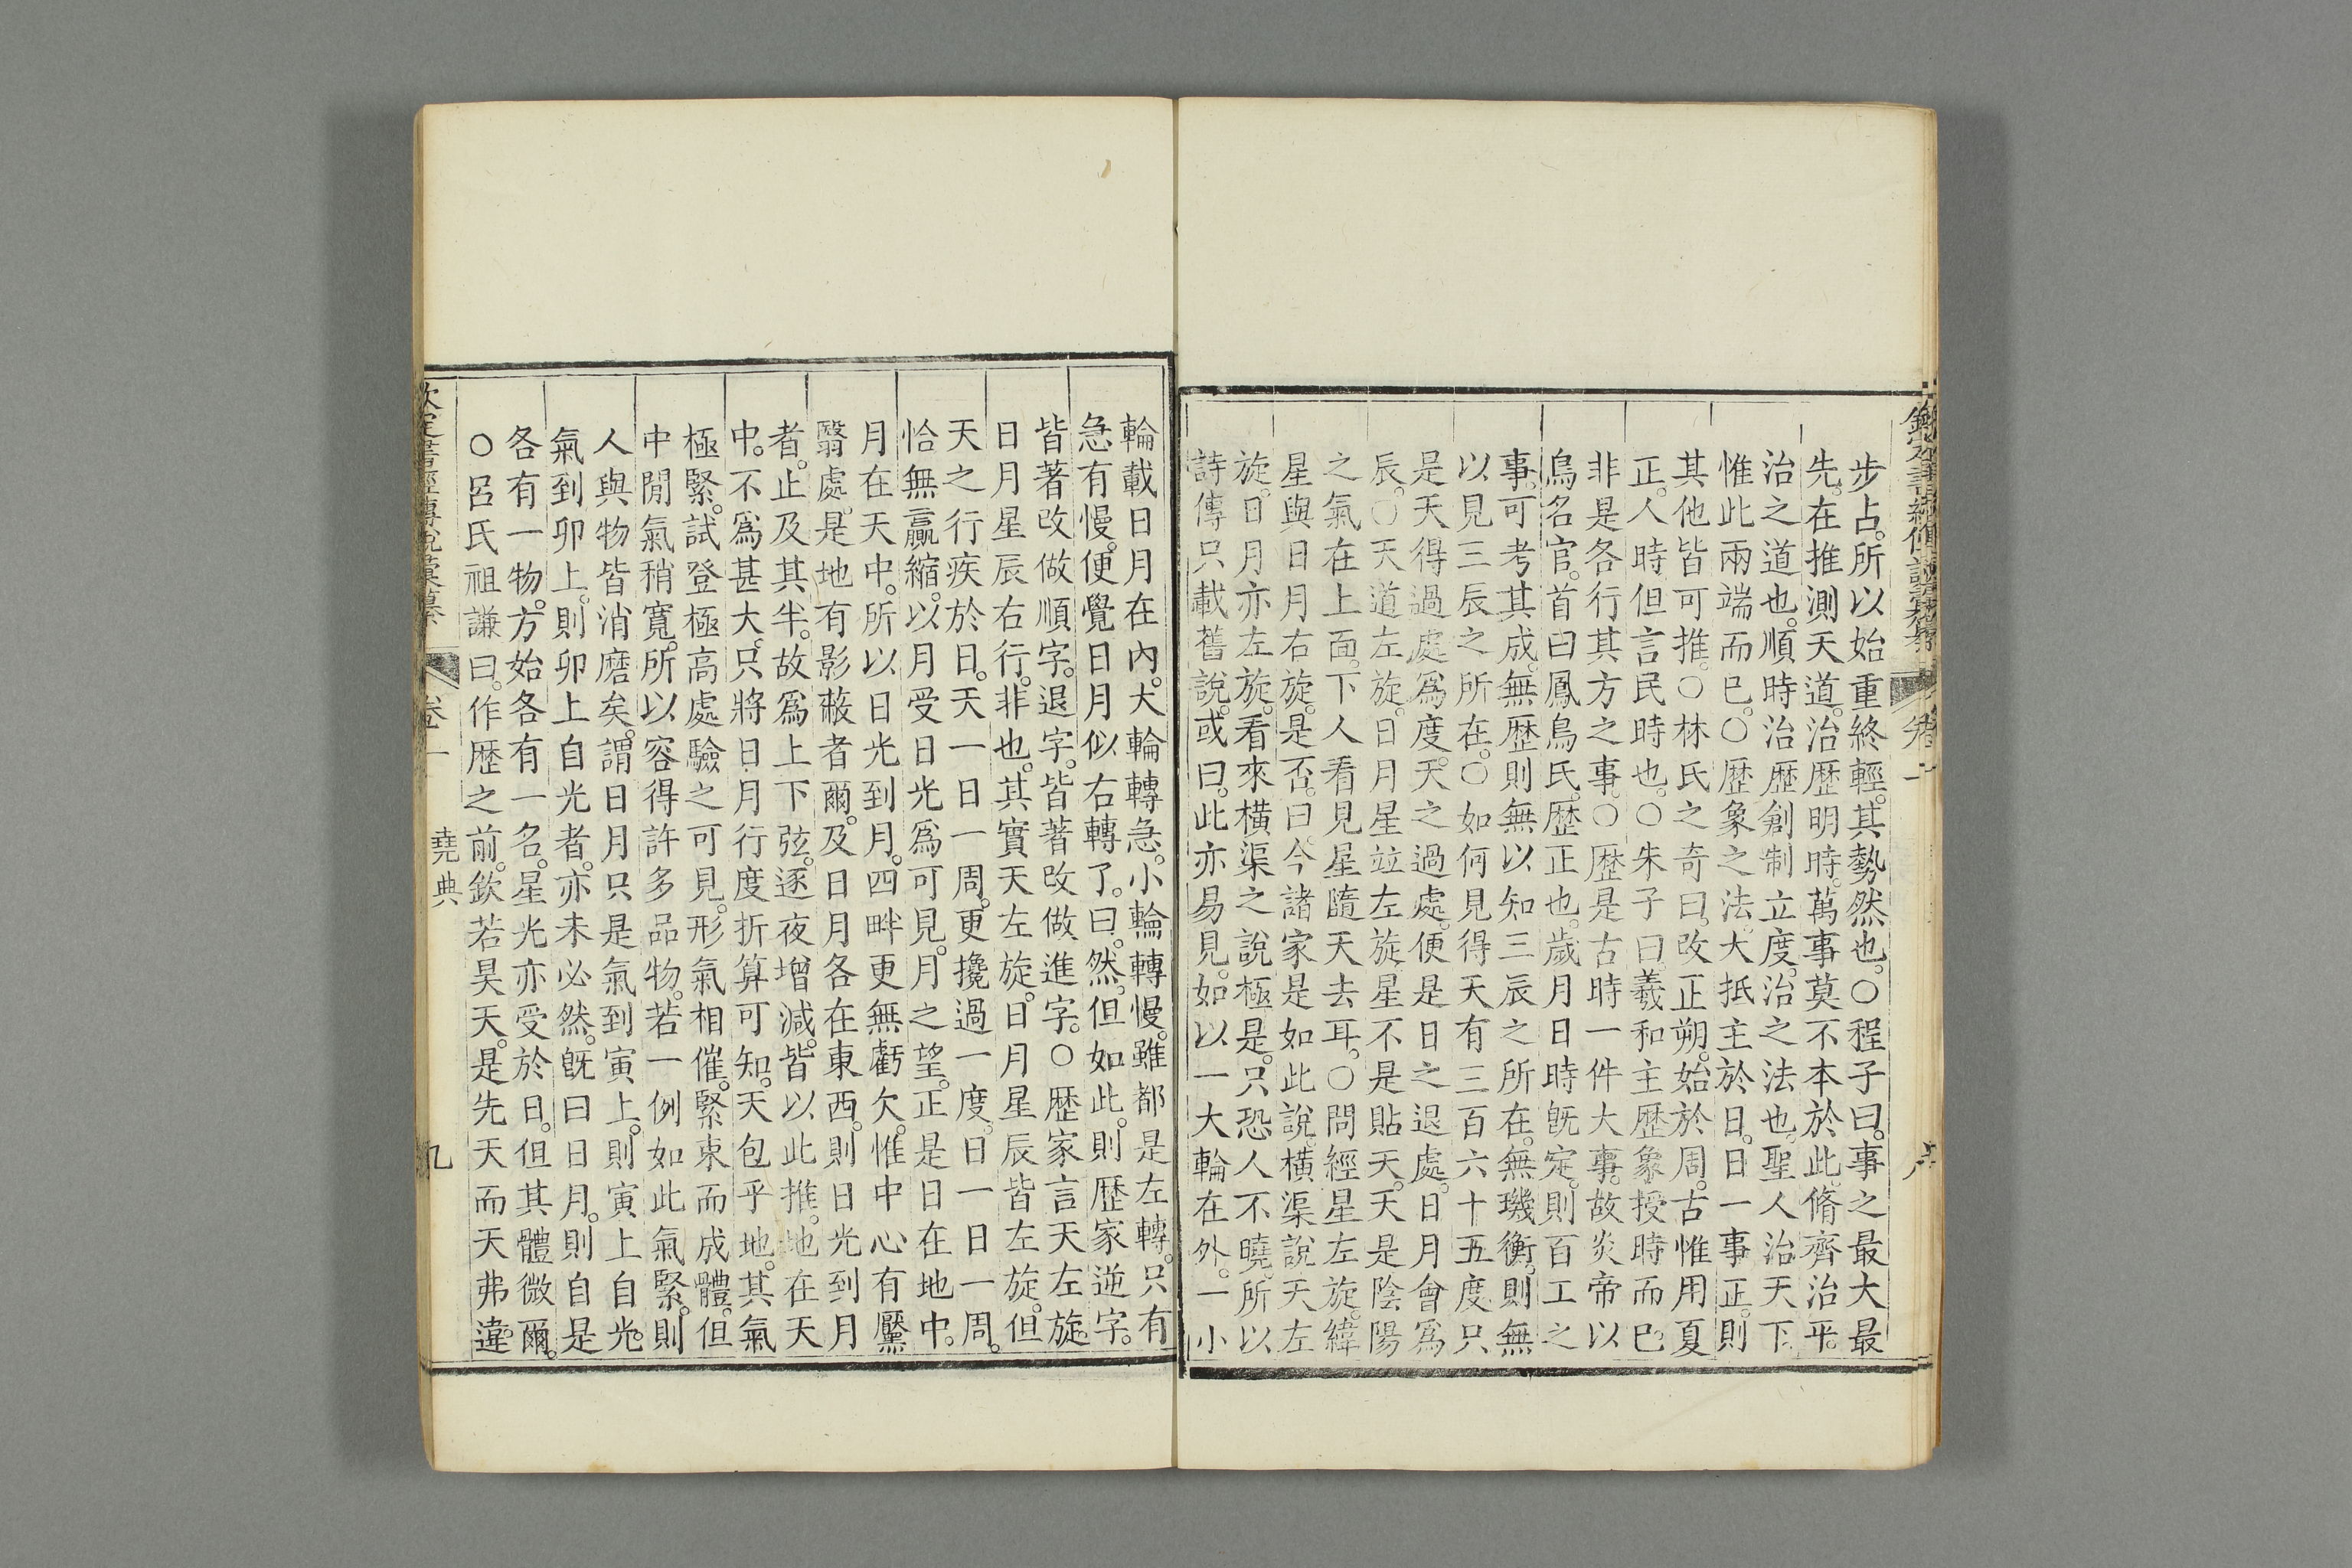 步占。所以始重終輕。其勢然也。○程子曰。事之最大最
先。在推測天道。治歷明時。萬事莫不本於此。脩齊治平。
治之道也。順時治歷。創制立度。治之法也。聖人治天下。
惟此兩端而已。○歷象之法。大抵主於日。日一事正。則
其他皆可推。○林氏之奇曰。改正朔。始於周。古惟用夏
正。人時但言民時也。○朱子曰。羲和主歷象授時而已。
非是各行其方之事。○歷是古時一件大事。故炎帝以
鳥名官。首曰鳳鳥氏。歷正也。歲月日時旣定。則百工之
事。可考其成。無歷則無以知三辰之所在。無璣衡。則無
以見三辰之所在。○如何見得天有三百六十五度。只
是天得過處爲度。天之過處。便是日之退處。日月會爲
辰。○天道左旋。日月星竝左旋。星不是貼天。天是陰陽
之氣在上面。下人看見星隨天去耳。○問經星左旋。緯
星與日月右旋。是否。曰。今諸家是如此說。橫渠說天左
旋。日月亦左旋。看來橫渠之說極是。只恐人不曉。所以
詩傳只載舊說。或曰。此亦易見。如以一大輪在外。一小
輪載日月在內。大輪轉急。小輪轉慢。雖都是左轉。只有
急有慢。便覺日月似右轉了。曰。然。但如此。則歷家逆字。
皆著改做順字。退字。皆著改做進字。○歷家言天左旋。
日月星辰右行。非也。其實天左旋。日月星辰皆左旋。但
天之行疾於日。天一日一周。更攙過一度。日一日一周。
恰無贏縮。以月受日光爲可見。月之望。正是日在地中。
月在天中。所以日光到月。四畔更無虧欠。惟中心有黶
翳處。是地有影蔽者爾。及日月各在東西。則日光到月
者。止及其半。故爲上下弦。逐夜增減。皆以此推。地在天
中。不爲甚大。只將日月行度折算可知。天包乎地。其氣
極緊。試登極高處驗之可見。形氣相催。緊束而成體。但
中閒氣稍寬。所以容得許多品物。若一例如此氣緊。則
人與物皆消磨矣。謂日月只是氣到寅上。則寅上自光。
氣到卯上。則卯上自光者。亦未必然。旣曰日月。則自是
各有一物。方始各有一名。星光亦受於日。但其體微爾。
○呂氏祖謙曰。作歷之前。欽若昊天。是先天而天弗違。
卷一 堯典 九